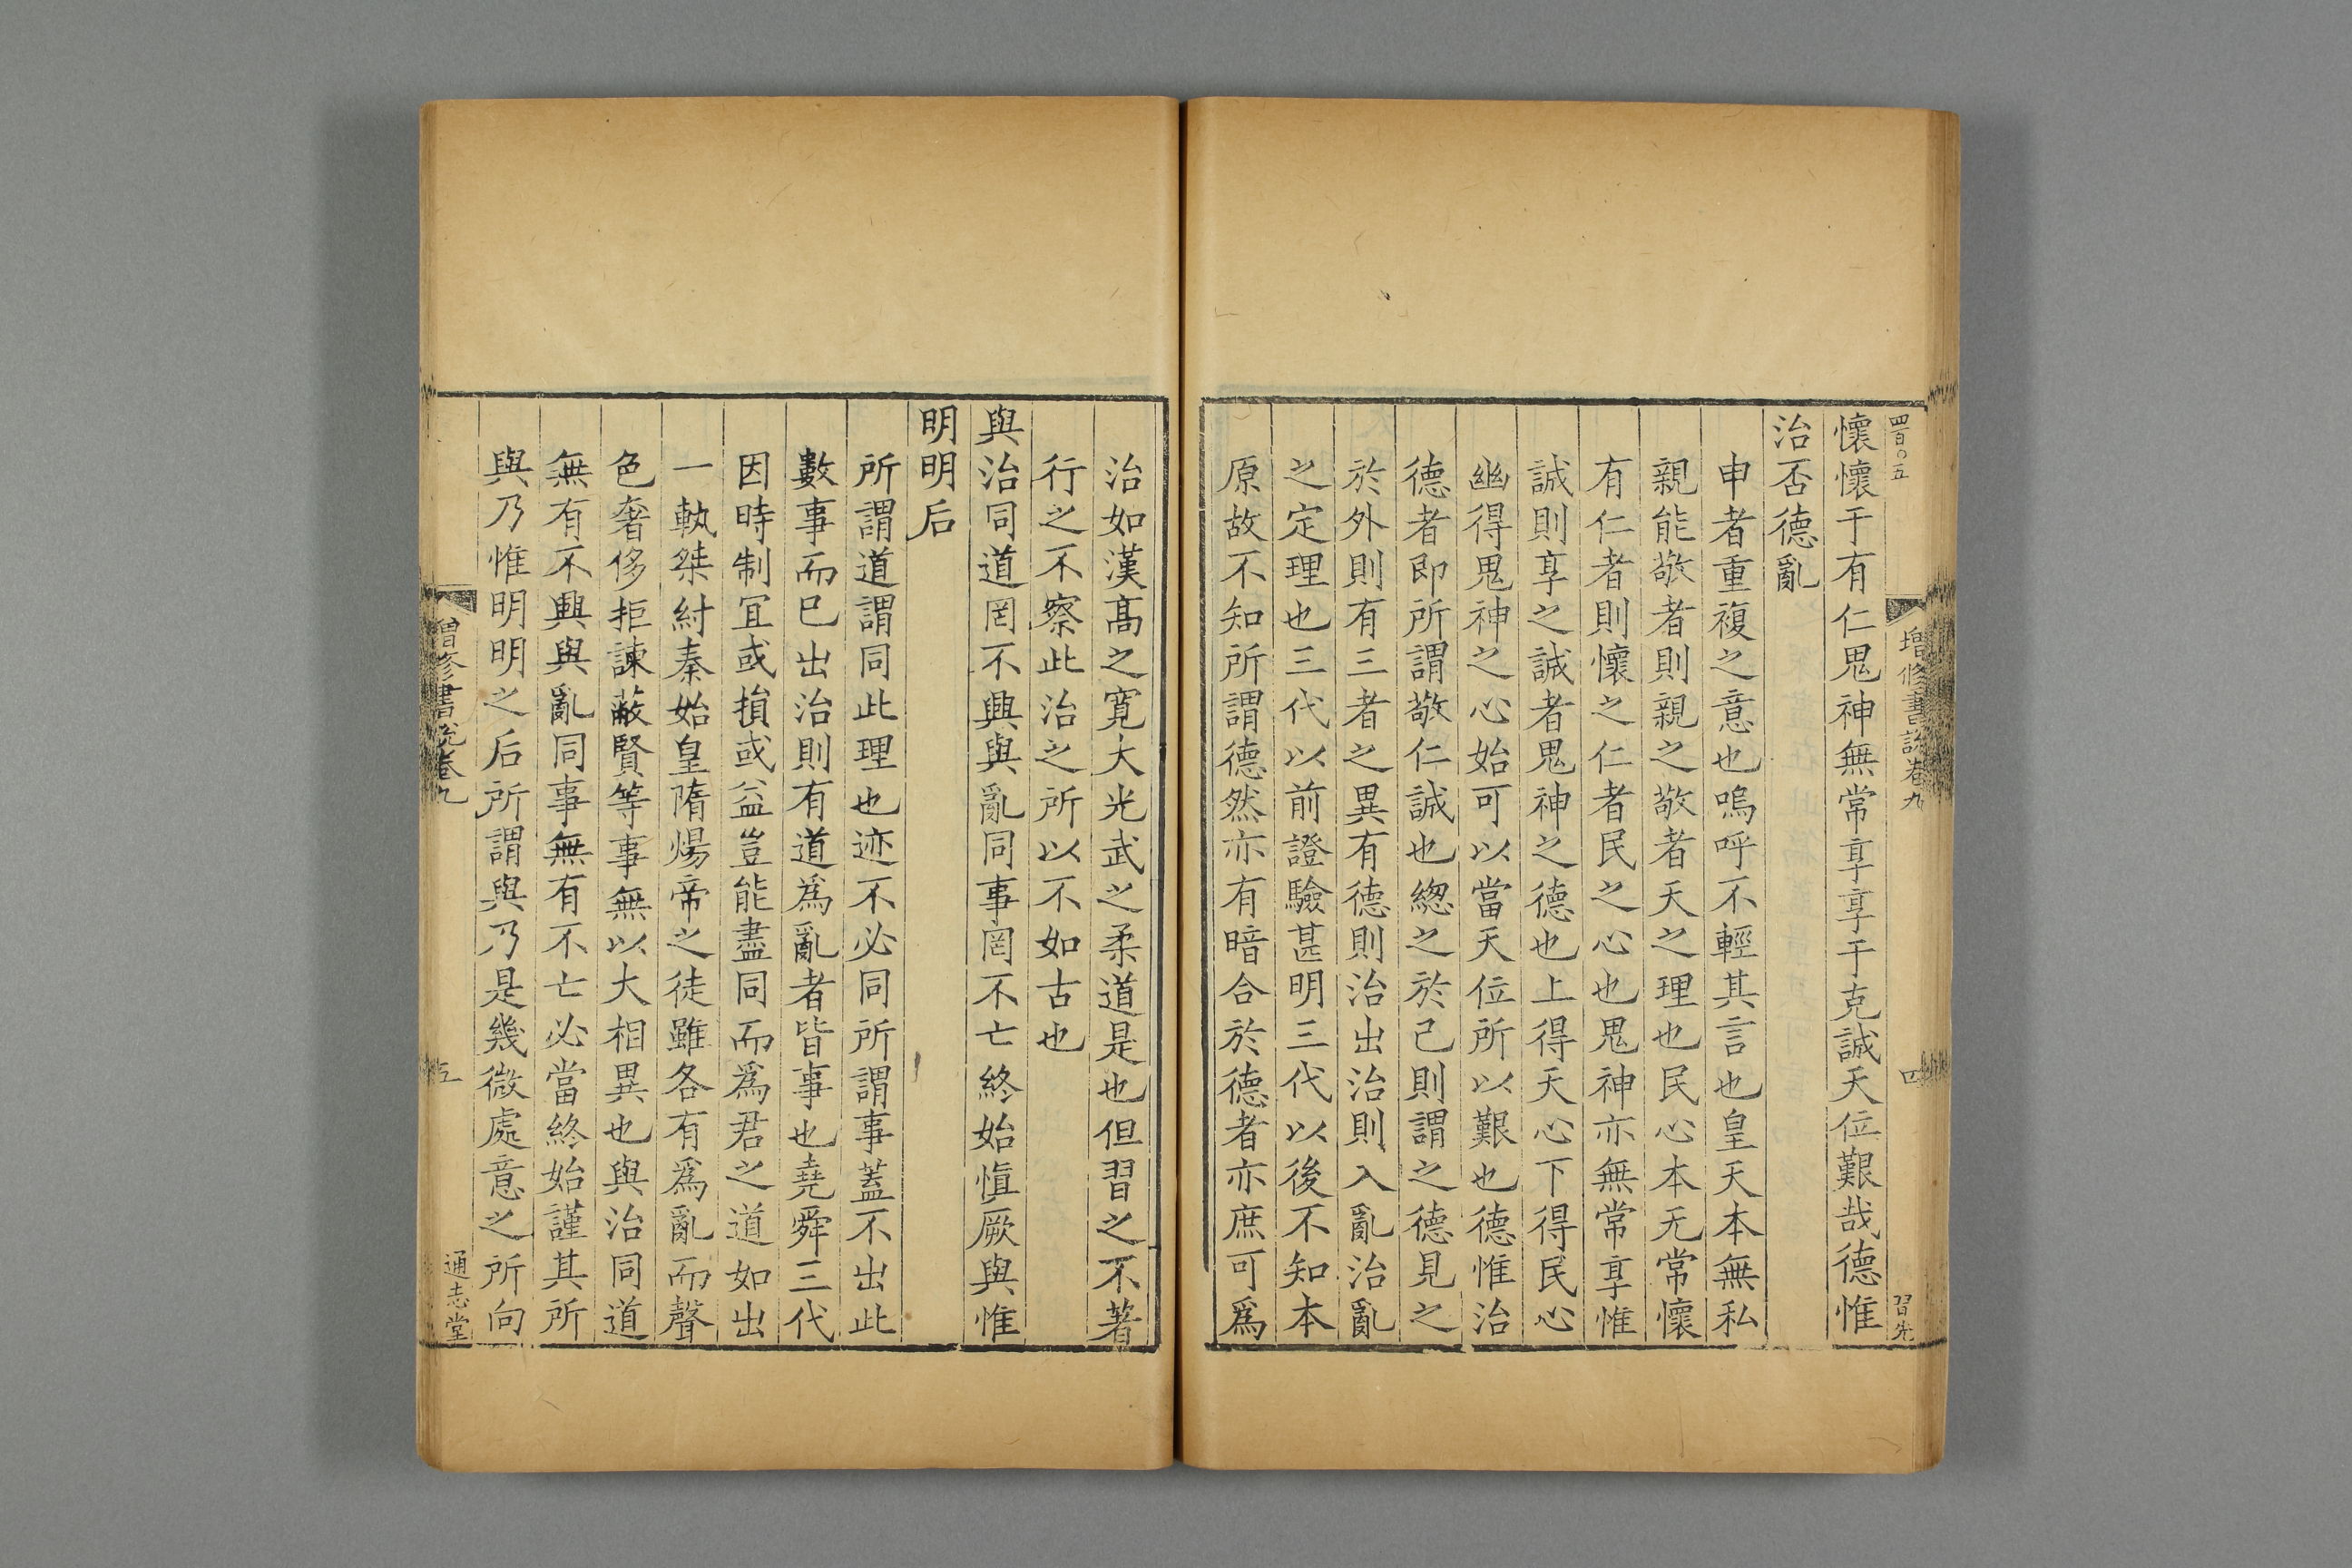 四百〇五
增修書說卷九
四
習先
懷懷于有仁鬼神無常享享于克誠天位艱哉德惟
治否德亂
申者重複之意也嗚呼不輕其言也皇天本無私
親能敬者則親之敬者天之理也民心本无常懷
有仁者則懷之仁者民之心也鬼神亦無常享惟
誠則享之誠者鬼神之德也上得天心下得民心
幽得鬼神之心始可以當天位所以艱也德惟治
德者即所謂敬仁誠也緫之於己則謂之德見之
於外則有三者之異有德則治出治則入亂治亂
之定理也三代以前證驗甚明三代以後不知本
原故不知所謂德然亦有暗合於德者亦庶可爲
治如漢髙之寛大光武之柔道是也但習之不著
行之不察此治之所以不如古也
與治同道罔不興與亂同事罔不亡終始愼厥與惟
明明后
所謂道謂同此理也迹不必同所謂事蓋不出此
數事而已出治則有道爲亂者皆事也堯舜三代
因時制宜或損或益豈能盡同而爲君之道如出
一軌桀紂秦始皇隋煬帝之徒雖各有爲亂而聲
色奢侈拒諫蔽賢等事無以大相異也與治同道
無有不興與亂同事無有不亡必當終始謹其所
與乃惟明明之后所謂與乃是幾微處意之所向
增修書說卷九
五
通志堂